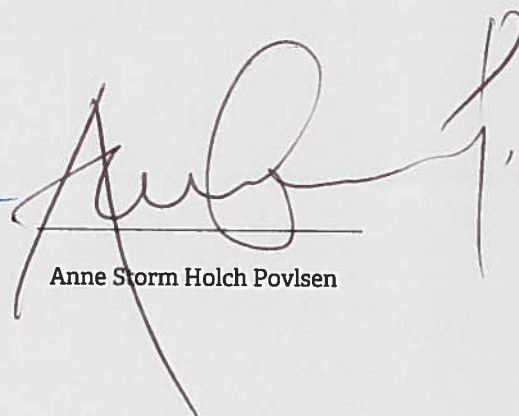 Anne Storm Holch Povlsen